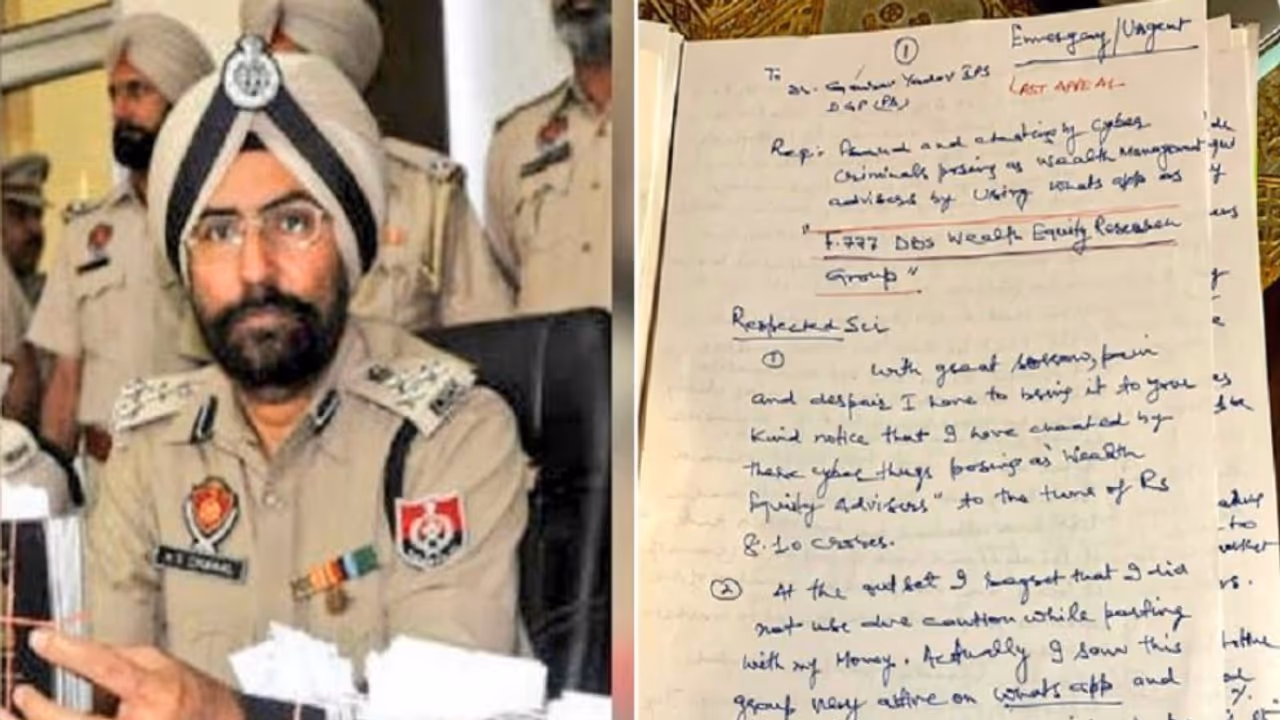 ①
Emergency/Urgent
To
Dr. Gaurav Yadav IPS
DGP (PB)
LAST APPEAL
and cheating by cyber
criminals posing as wealth Management
advisers by using whats app as
"F.777 DBS Wealth Equity Research
Group"
Respected Sir
① with great sorrow, pain
and despair I have to bring it to your
kind notice that I have cheated by
these cyber thugs posing as "Wealth
Equity Advisers" to the tune of Rs
8.10 crores.
② At the out set I regret that I did
not use due caution while parting
with my Money. Actually I saw this
group very active on whats app and